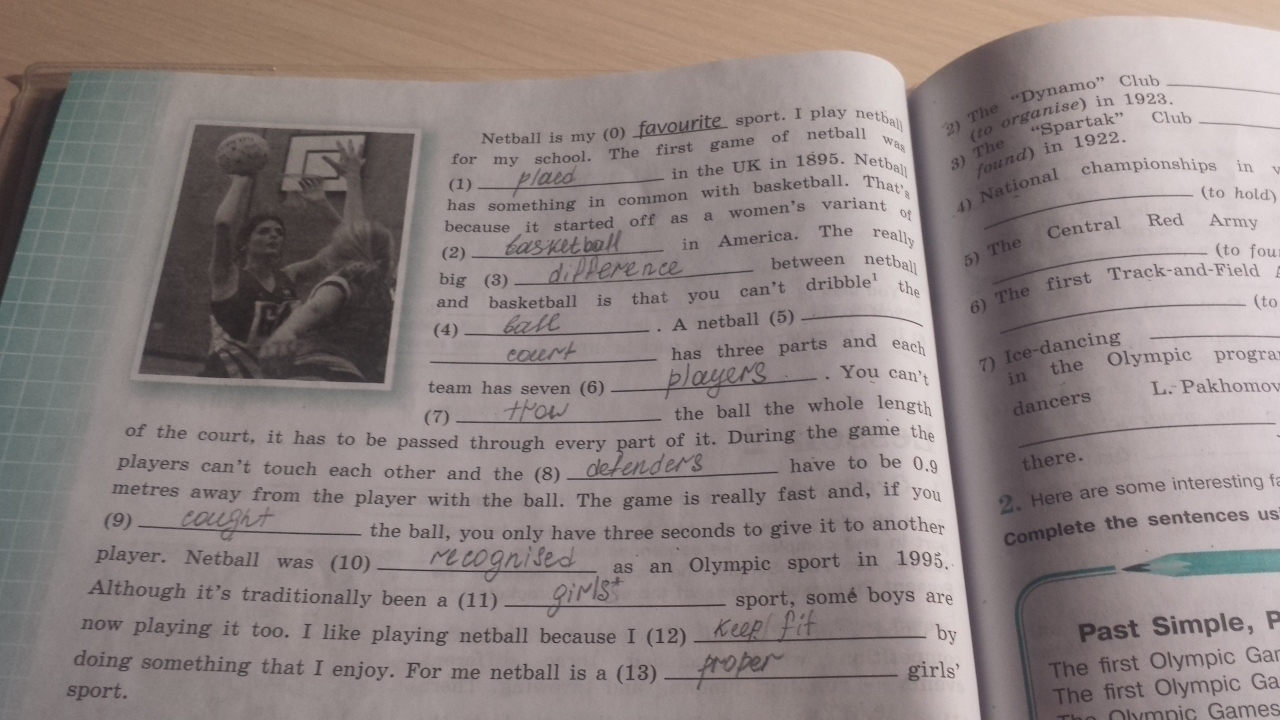 Netball is my (0) favourite sport. I play netball
for my school. The first game of netball was
(1) plaed in the UK in 1895. Netball
has something in common with basketball. That's
because it started off as a women's variant of
(2) basketball in America. The really
big (3) difference between netball
and basketball is that you can't dribble¹ the
(4) ball . A netball (5)
court has three parts and each
team has seven (6) players . You can't
(7) trow the ball the whole length
of the court, it has to be passed through every part of it. During the game the
players can't touch each other and the (8) defenders have to be 0.9
metres away from the player with the ball. The game is really fast and, if you
(9) cought the ball, you only have three seconds to give it to another
player. Netball was (10) recognised as an Olympic sport in 1995.
Although it's traditionally been a (11) girls' sport, some boys are
now playing it too. I like playing netball because I (12) keep fit by
doing something that I enjoy. For me netball is a (13) proper girls'
sport.
2) The "Dynamo" Club
(to organise) in 1923.
3) The "Spartak" Club
found) in 1922.
4) National championships in
(to hold)
5) The Central Red Army
(to fou
6) The first Track-and-Field
(to
7) Ice-dancing
in the Olympic progra
dancers L. Pakhomov
there.
2. Here are some interesting fa
Complete the sentences us
Past Simple, P
The first Olympic Gar
The first Olympic Ga
The Olympic Games